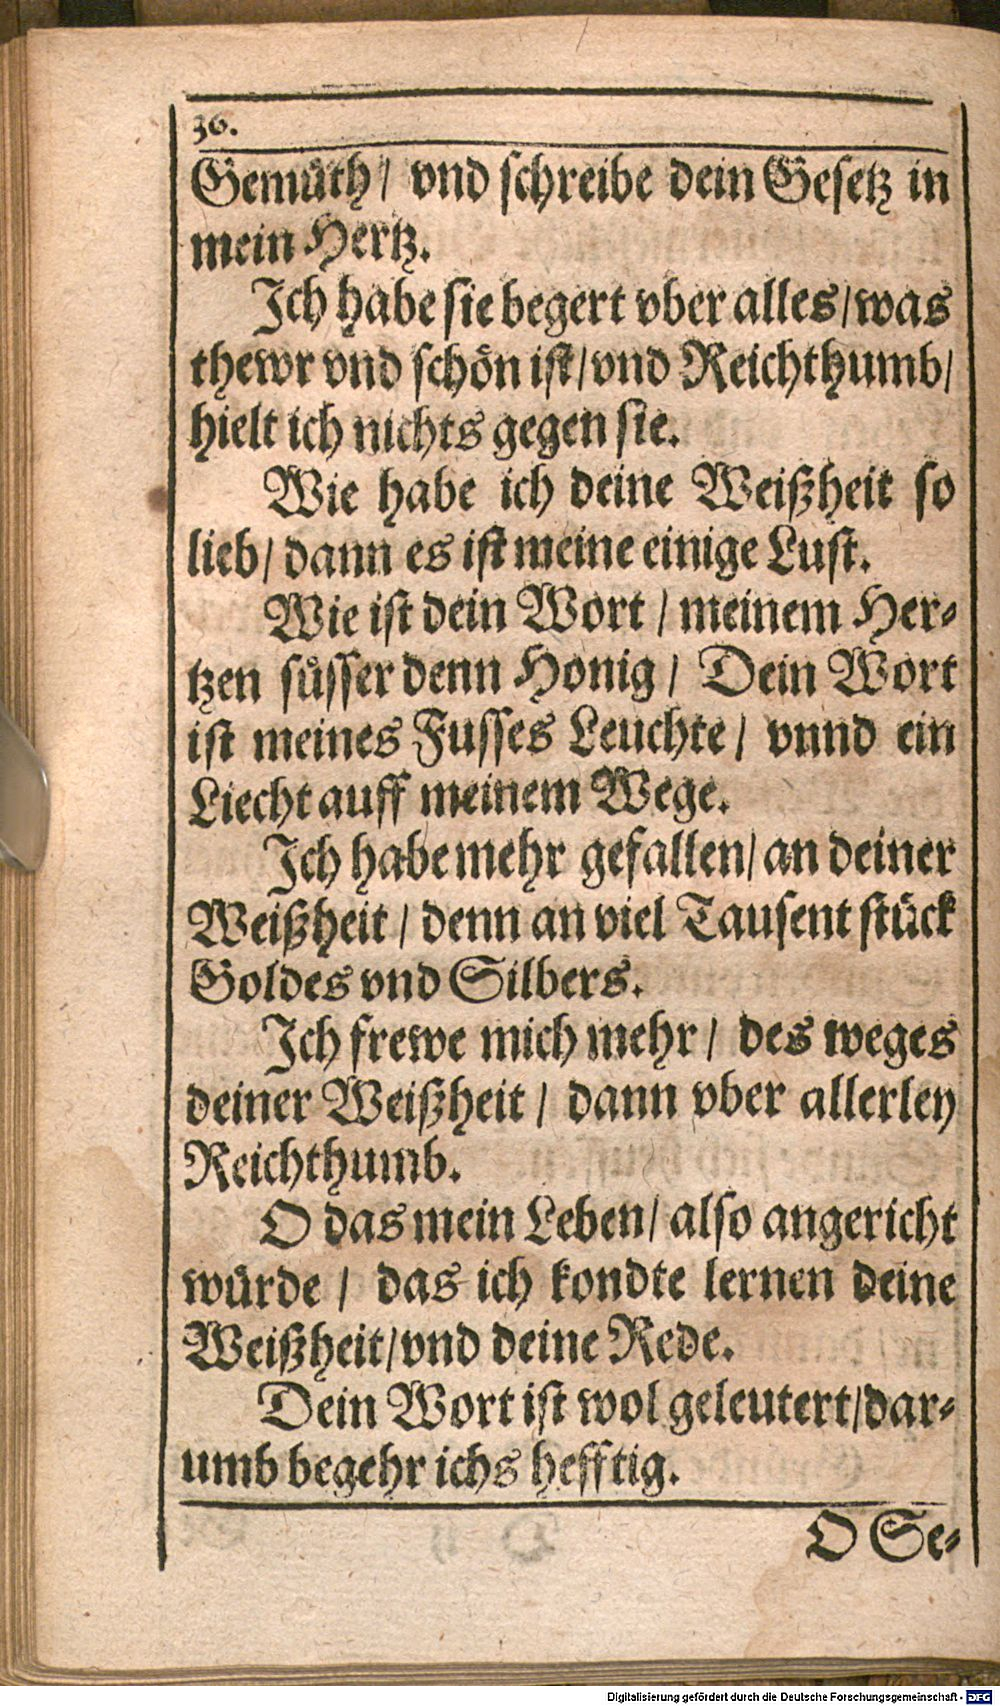 36.
Gemuͤth/ vnd schreibe dein Gesetz in
mein Hertz.
Ich habe sie begert vber alles/was
thewr vnd schoͤn ist/vnd Reichthumb/
hielt ich nichts gegen sie.
Wie habe ich deine Weißheit so
lieb/ dann es ist meine einige Lust.
Wie ist dein Wort / meinem Her-
tzen suͤsser denn Honig / Dein Wort
ist meines Fusses Leuchte / vnnd ein
Liecht auff meinem Wege.
Ich habe mehr gefallen/ an deiner
Weißheit / denn an viel Tausent stuͤck
Goldes vnd Silbers.
Ich frewe mich mehr / des weges
deiner Weißheit / dann vber allerley
Reichthumb.
O das mein Leben/ also angericht
wuͤrde / das ich kondte lernen deine
Weißheit/vnd deine Rede.
Dein Wort ist wol geleutert/dar-
umb begehr ichs hefftig.
O Se-
Digitalisierung gefördert durch die Deutsche Forschungsgemeinschaft - DFG